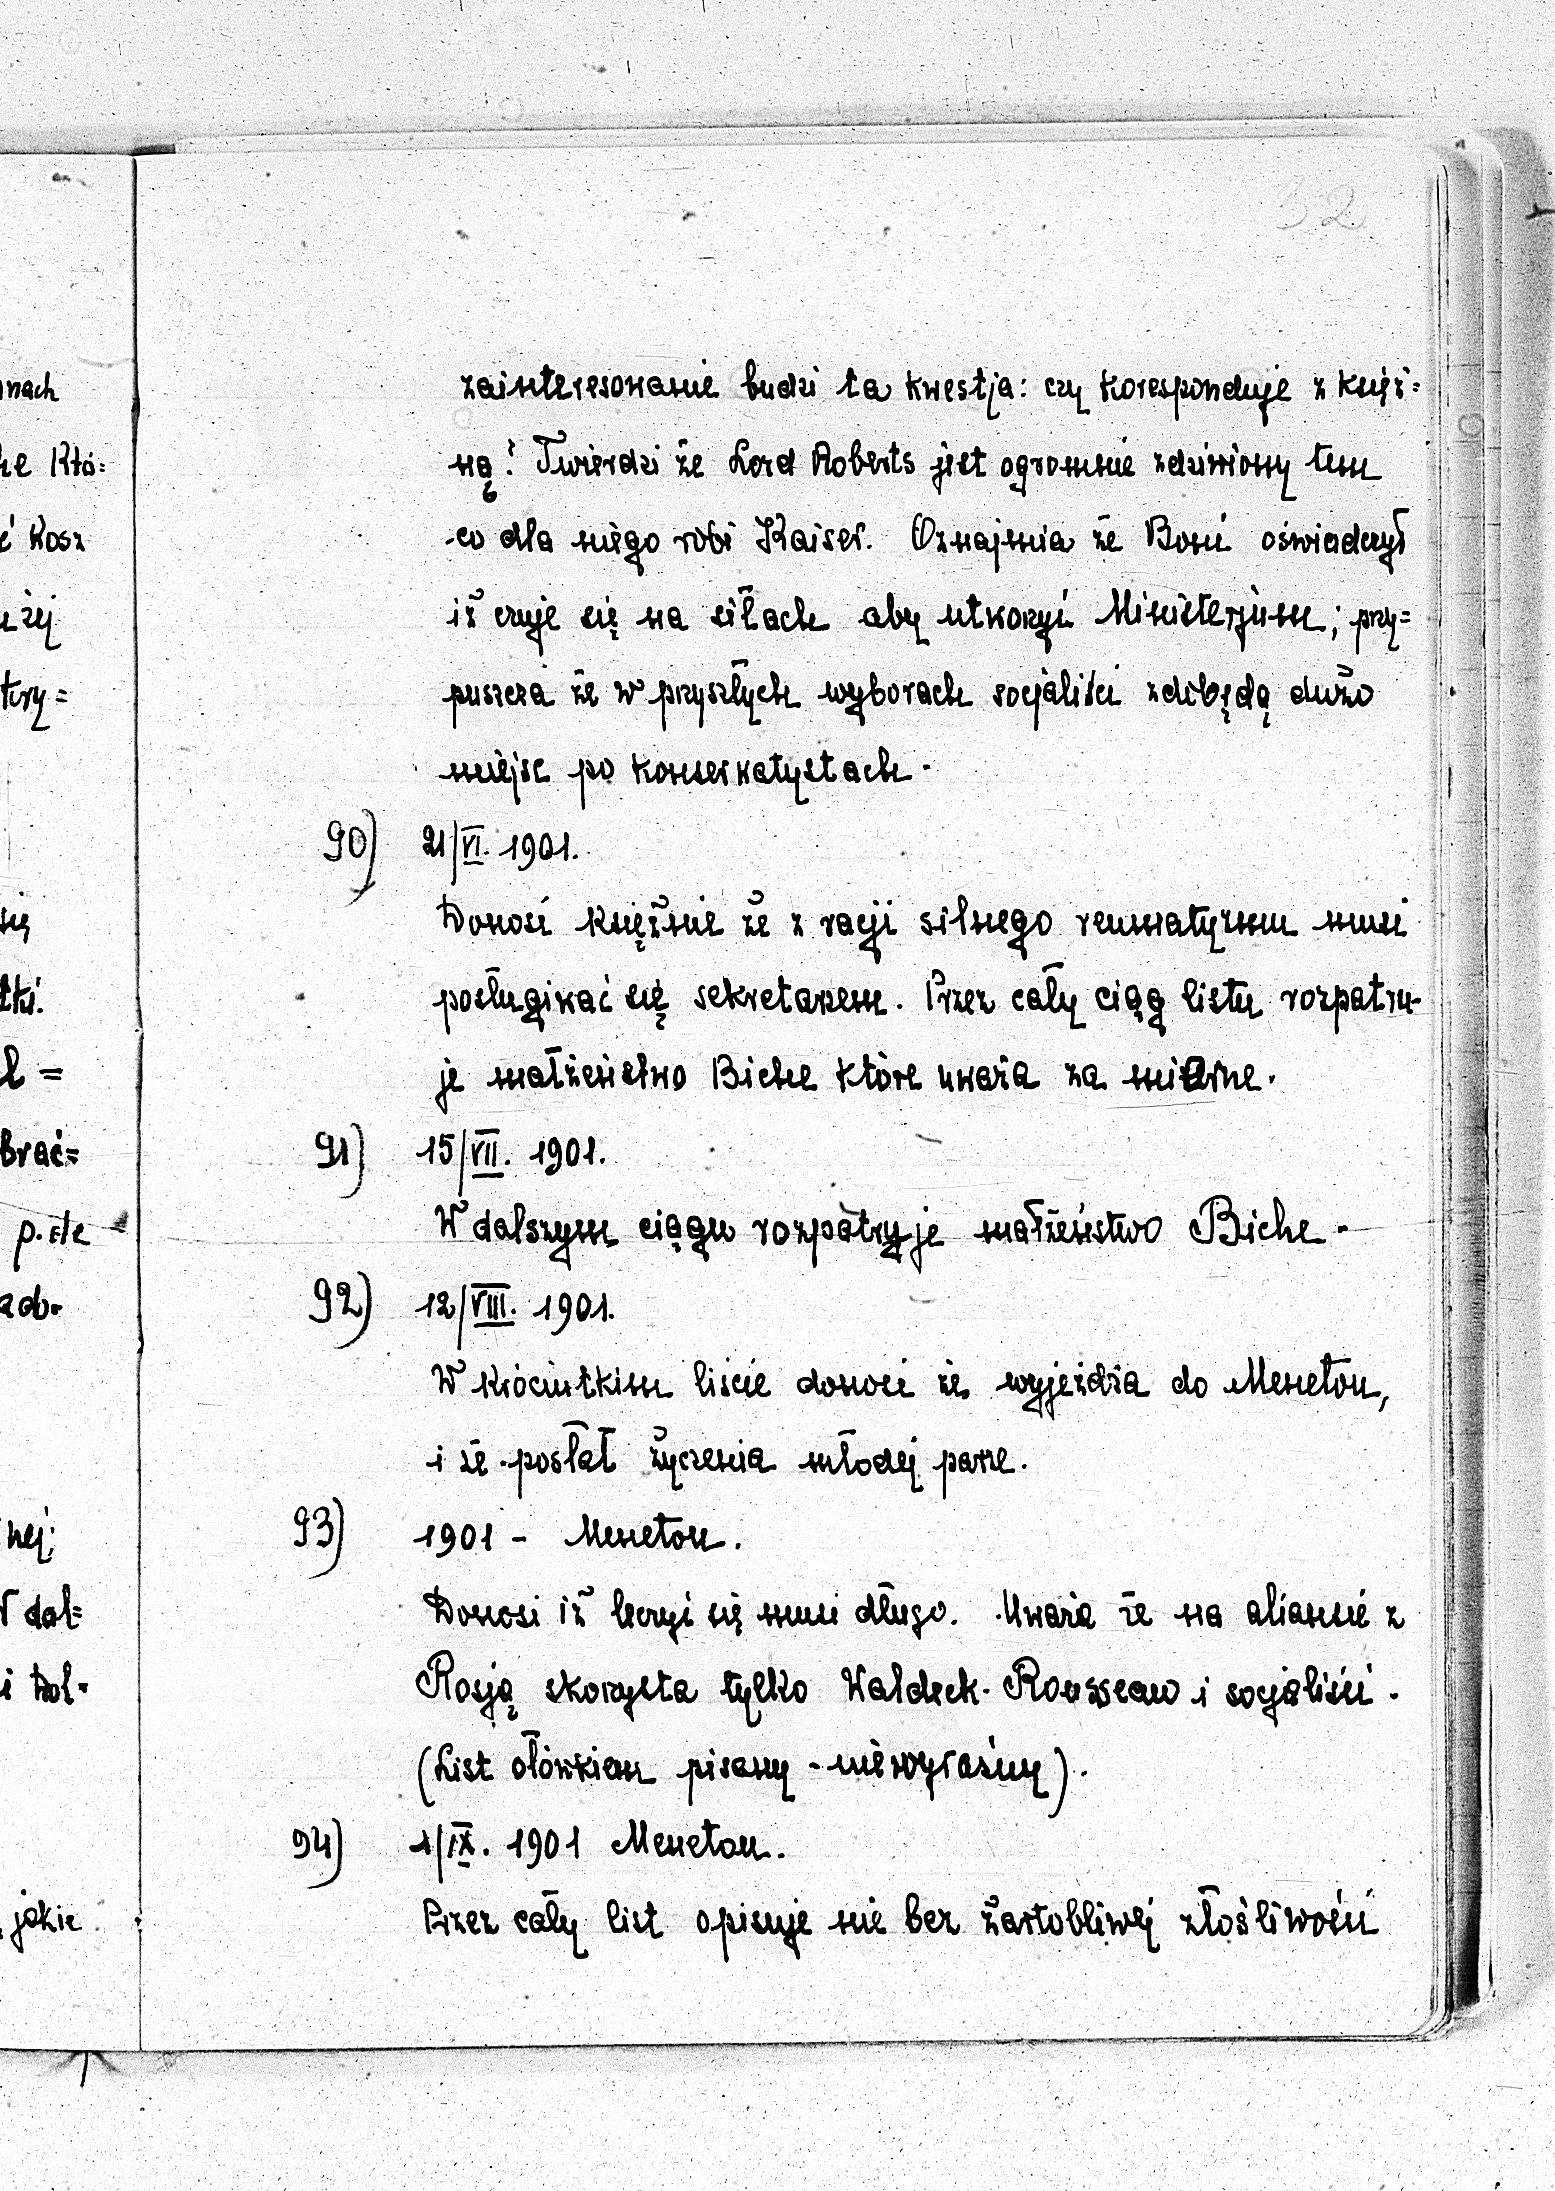 32
zainteresowanie budzi ta kwestja: czy koresponduje z księż=
ną? Twierdzi że Lord Roberts jest ogromnie zdziwiony tem
co dla niego robi Kaiser. Oznajmia że Boni oświadczył
iż czuje się na siłach aby utworzyć Ministerjum; przy=
puszcza że w przyszłych wyborach socjaliści zdobędą dużo
miejsc po konserwatystach.
90) 21/VI. 1901.
Donosi księżnie że z racji silnego reumatyzmu musi
posługiwać się sekretarzem. Przez cały ciąg listu rozpatru-
je małżeństwo Biche które uważa za mierne.
91) 15/VII. 1901.
W dalszym ciągu rozpatryje małżeństwo Biche.
92) 12/VIII. 1901.
W króciutkim liście donosi że wyjeżdża do Meneton,
i że posłał życzenia młodej parze.
93) 1901 - Meneton.
Donosi iż leczyć się musi długo. Uważa że na aliansie z
Rosją skorzysta tylko Waldeck-Rousseau i socjaliści.
(List ołówkiem pisany - niewyraźny).
94) 1/IX. 1901 Meneton.
Przez cały list opisuje nie bez żartobliwej złośliwości
nach
Któ=
Kosz
żej
tury=
brać=
p. de
nej;
dal=
i
jakie